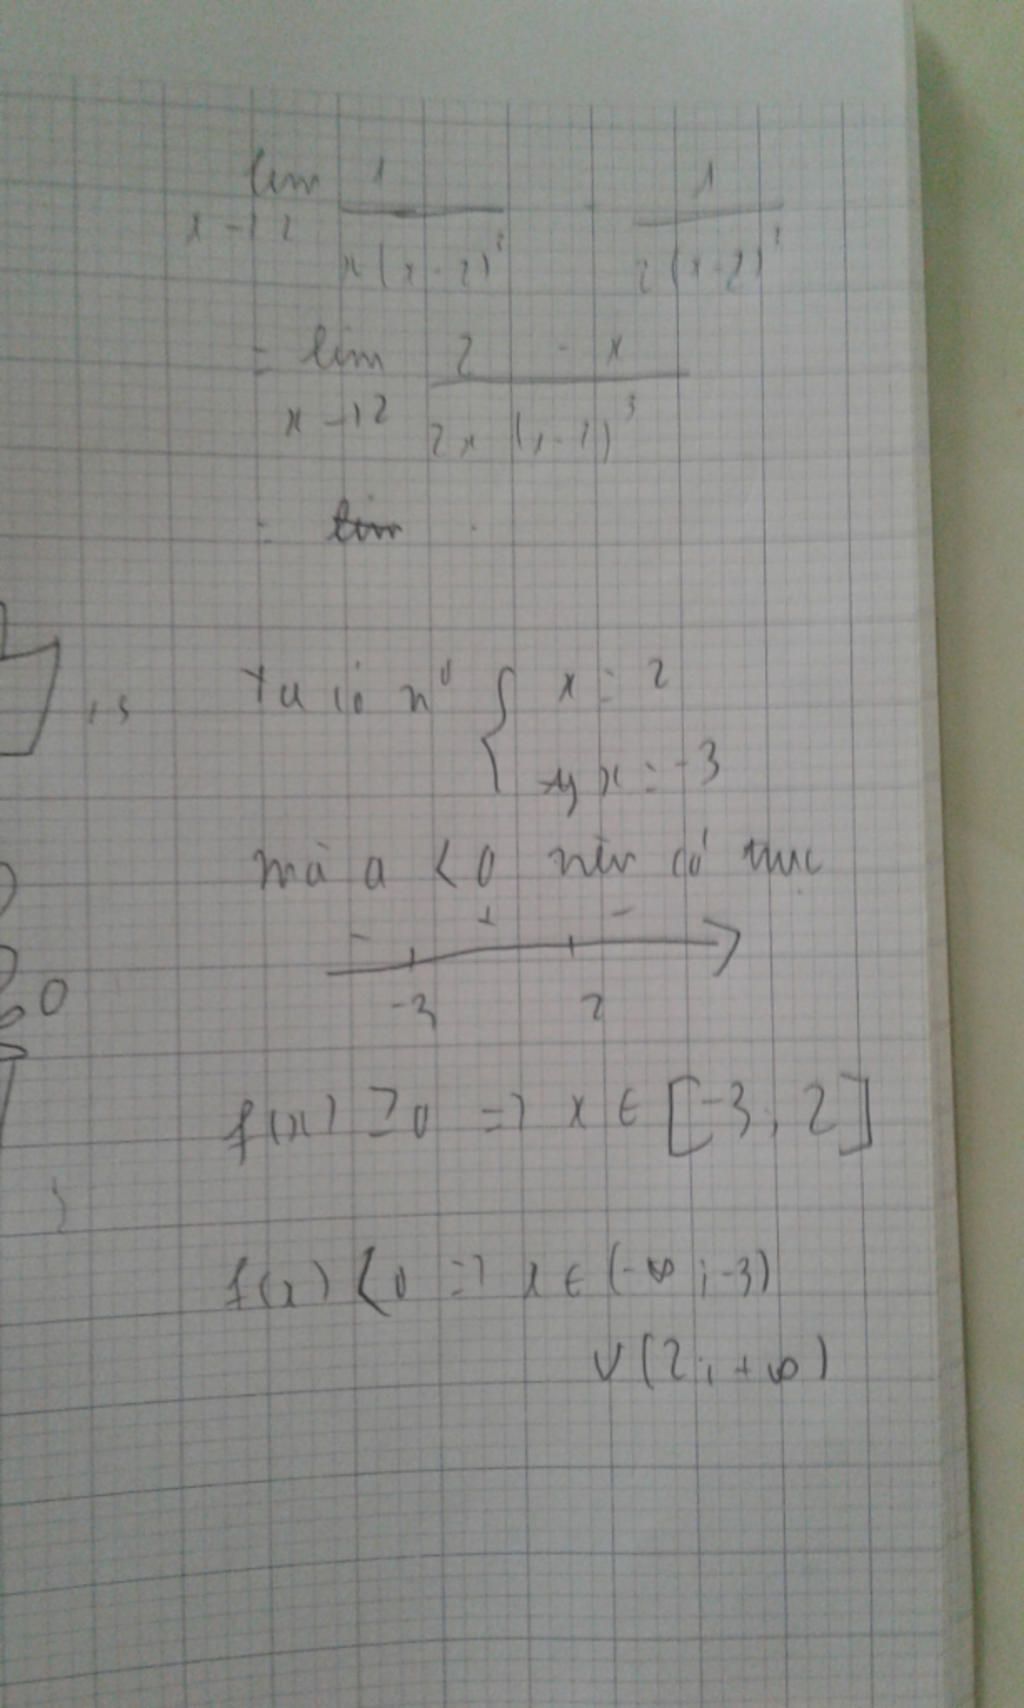 lim 1/x(x-2)³ - 1/2(x-2)³
x→2
= lim 2 - x / 2x(x-2)³
x→2
= lim
Ta có n⁰ { x = 2
x = -3
mà a < 0 nên có trục
- + -
-3 2
f(x) ≥ 0 => x ∈ [-3; 2]
f(x) < 0 => x ∈ (-∞; -3)
∪ (2; +∞)